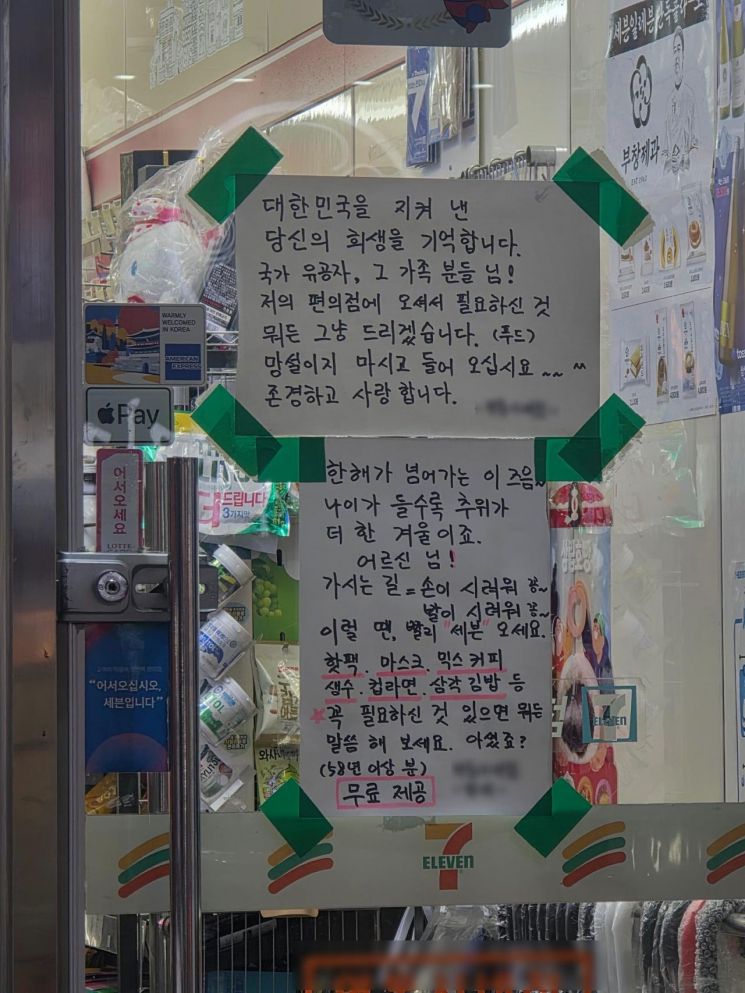 세븐일레븐
부창제과
대한민국을 지켜 낸
당신의 희생을 기억합니다.
국가 유공자, 그 가족 분들 님!
저의 편의점에 오셔서 필요하신 것
뭐든 그냥 드리겠습니다. (푸드)
망설이지 마시고 들어 오십시요~~ ^^
존경하고 사랑합니다.
WARMLY
WELCOMED
IN KOREA
AMERICAN
EXPRESS
Pay
어서오세요
LOTTE
드립니다
3가지맛
한해가 넘어가는 이 즈음~
나이가 들수록 추위가
더 한 겨울이죠.
어르신 님!
가시는 길 = 손이 시려워 꽁~
발이 시려워 꽁~
이럴 땐, 빨리 "세븐" 오세요.
핫팩. 마스크. 믹스커피
생수. 컵라면. 삼각김밥 등
★ 꼭 필요하신 것 있으면 뭐든
말씀 해 보세요. 아셨죠?
(58년 이상 분)
무료 제공
"어서오십시오,
세븐입니다"
7
ELEVEN
7
ELEVEN